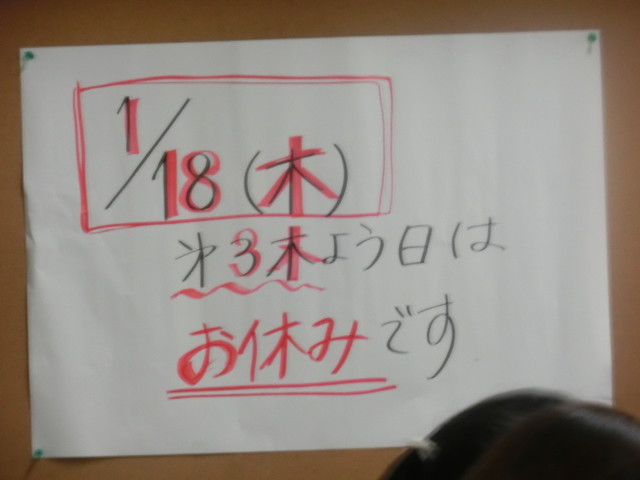 1/18(木)
㐧3木よう日は
お休みです